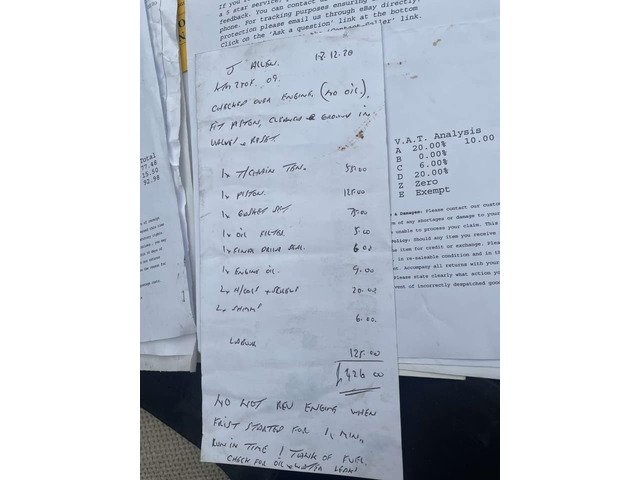 a 5 star service,
feedback. You can contact us
phone. For tracking purposes ensuring
protection please email us through eBay directly.
Click on the 'Ask a question' link at the bottom
link.
J ALLEN. 12.20
CHECKED OVER ENGINE, (NO OIL),
FIT PISTON, CLEANED & GROUND IN
VALVES & RESET.
1x T/CHAIN TEN. 55.00
1x PISTON. 125.00
1x GASKET SET 75.00
1x OIL FILTER 5.00
1x FINAL DRIVE SEAL. 6.00
1x ENGINE OIL. 9.00
2x 20.00
2x SHIMS
6.00.
LABOUR
125.00
£426 00
DO NOT REV ENGINE WHEN
FRIST STARTED FOR 1 MIN.,
RUN IN TIME 1 TANK OF FUEL.
CHECK FOR OIL & WATER LEAKS
Total
77.48
15.50
92.98
V.A.T. Analysis
A 20.00% 10.00
B 0.00%
C 6.00%
D 20.00%
Z Zero
E Exempt
& Damages: Please contact our custome
of any shortages or damage to your
unable to process your claim. This
Policy: Should any item you receive
item for credit or exchange. Please
in re-saleable condition and in th
Accompany all returns with your
Please state clearly what action you
event of incorrectly despatched good